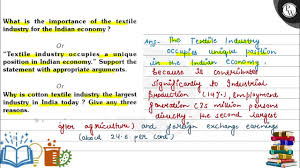 What is the importance of the textile
industry for the Indian economy ?
Or
"Textile industry occupies a unique
position in Indian economy." Support the
statement with appropriate arguments.
Or
Why is cotton textile industry the largest
industry in India today ? Give any three
reasons.
Ans- The Textile Industry
occupies unique position
in the Indian Economy.
because it contributed
significantly to Industrial
production (14%), employment
generation (35 million persons
directly - the second largest
after agriculture) and foreign exchange earnings
(about 24.6 per cent)